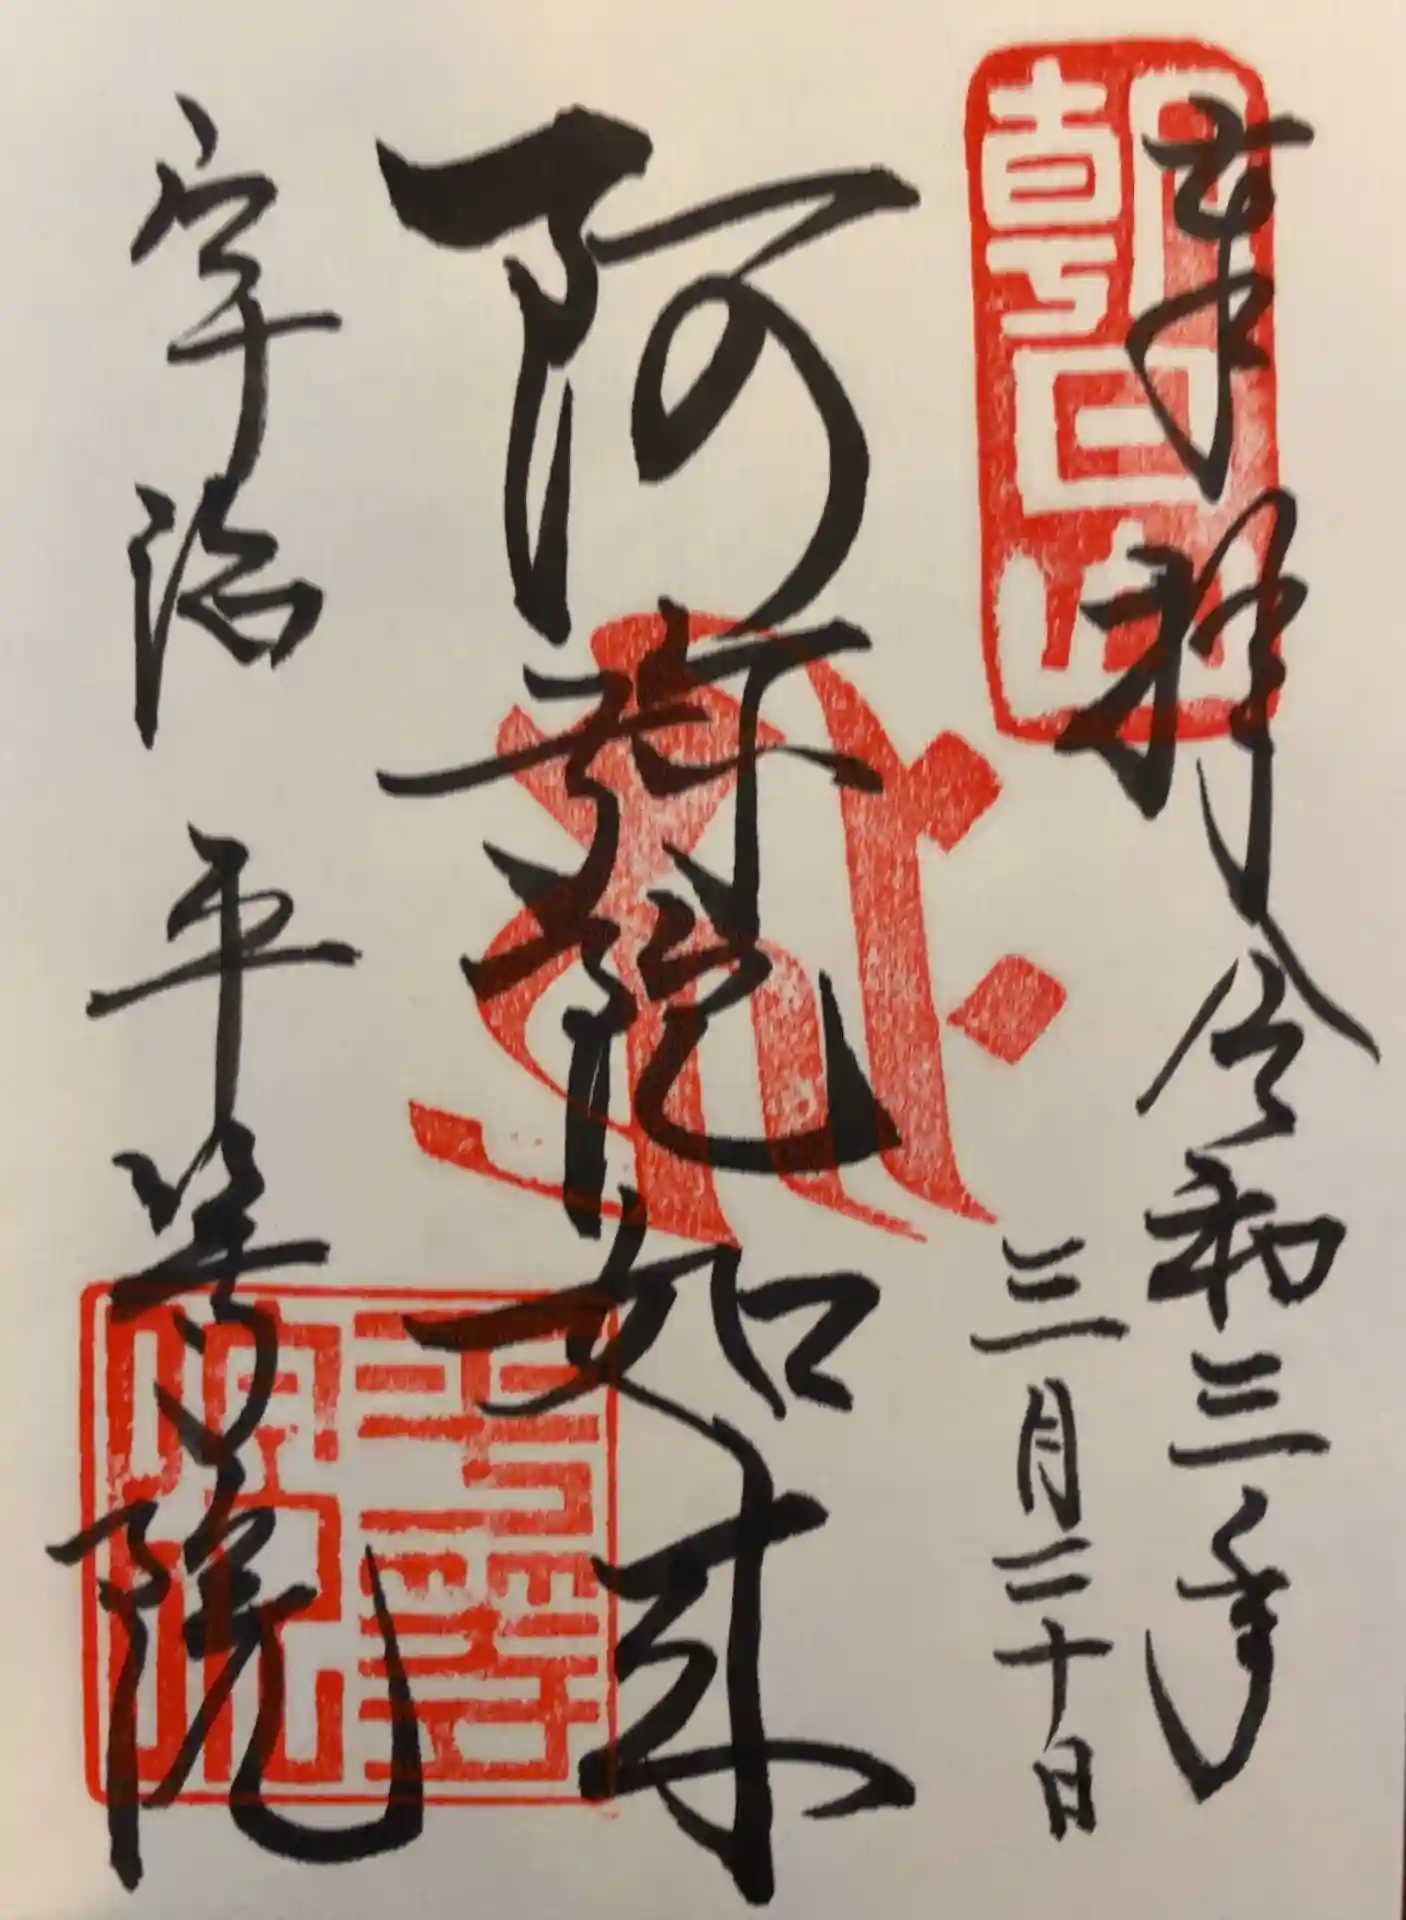 奉拝 令和三年
三月二十日
阿弥陀如来
宇治 平等院
朝日山
平等院印